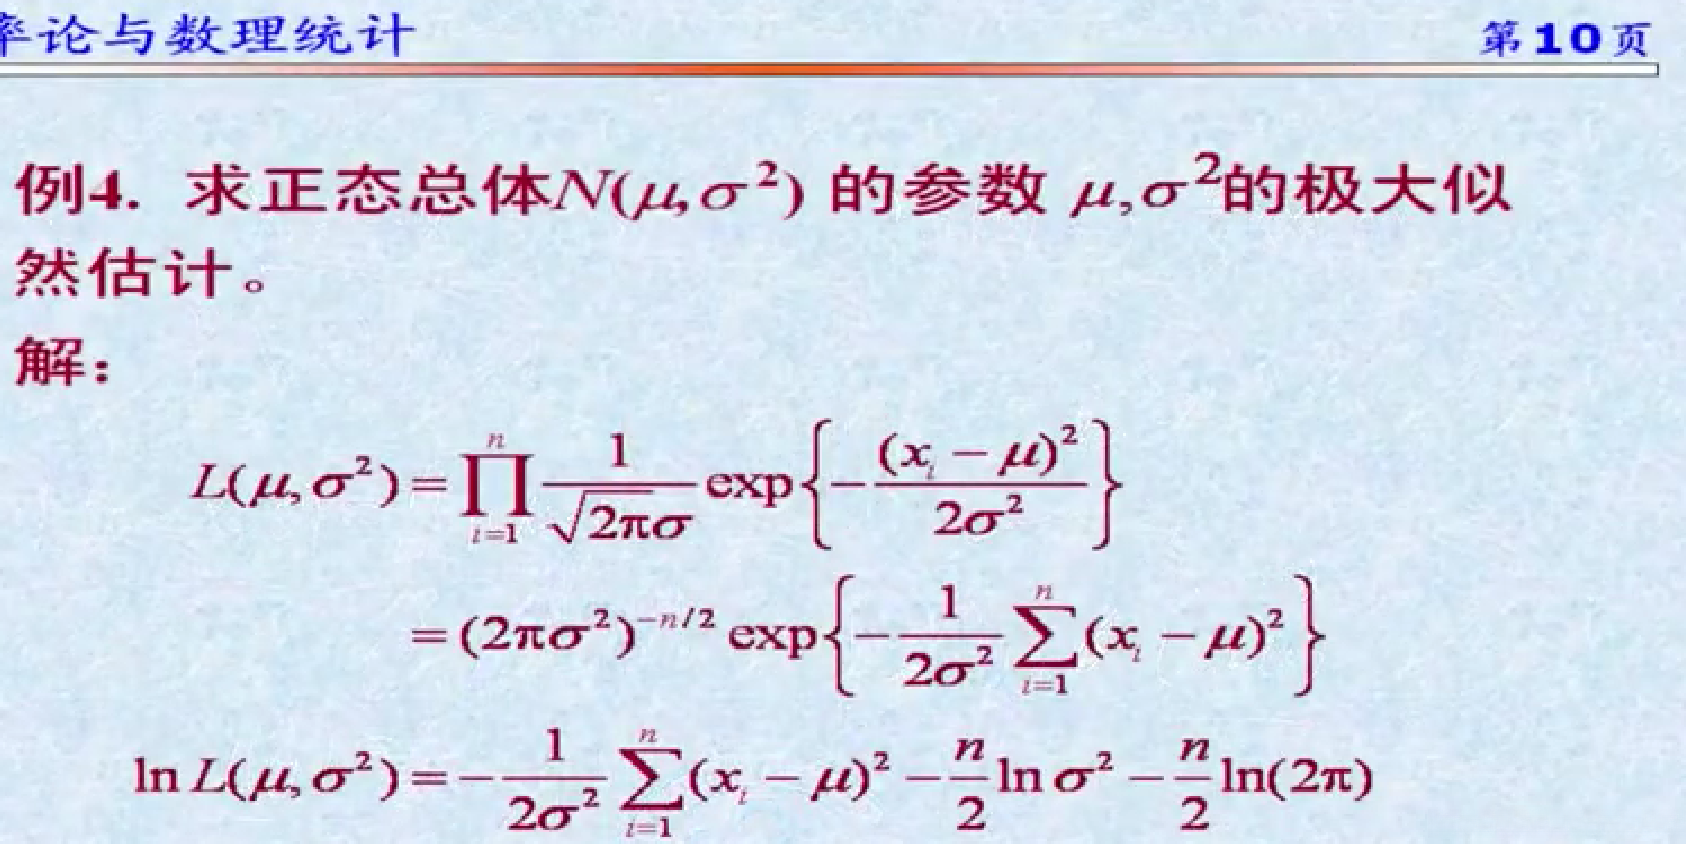 率论与数理统计
第10页
例4. 求正态总体N(μ,σ²) 的参数 μ,σ²的极大似
然估计。
解:
L(μ, σ²) = ∏_{i=1}^{n} \frac{1}{\sqrt{2π}σ} exp{ -\frac{(x_i - μ)²}{2σ²} }
= (2πσ²)^{-n/2} exp{ -\frac{1}{2σ²} ∑_{i=1}^{n} (x_i - μ)² }
ln L(μ, σ²) = -\frac{1}{2σ²} ∑_{i=1}^{n} (x_i - μ)² - \frac{n}{2} ln σ² - \frac{n}{2} ln(2π)